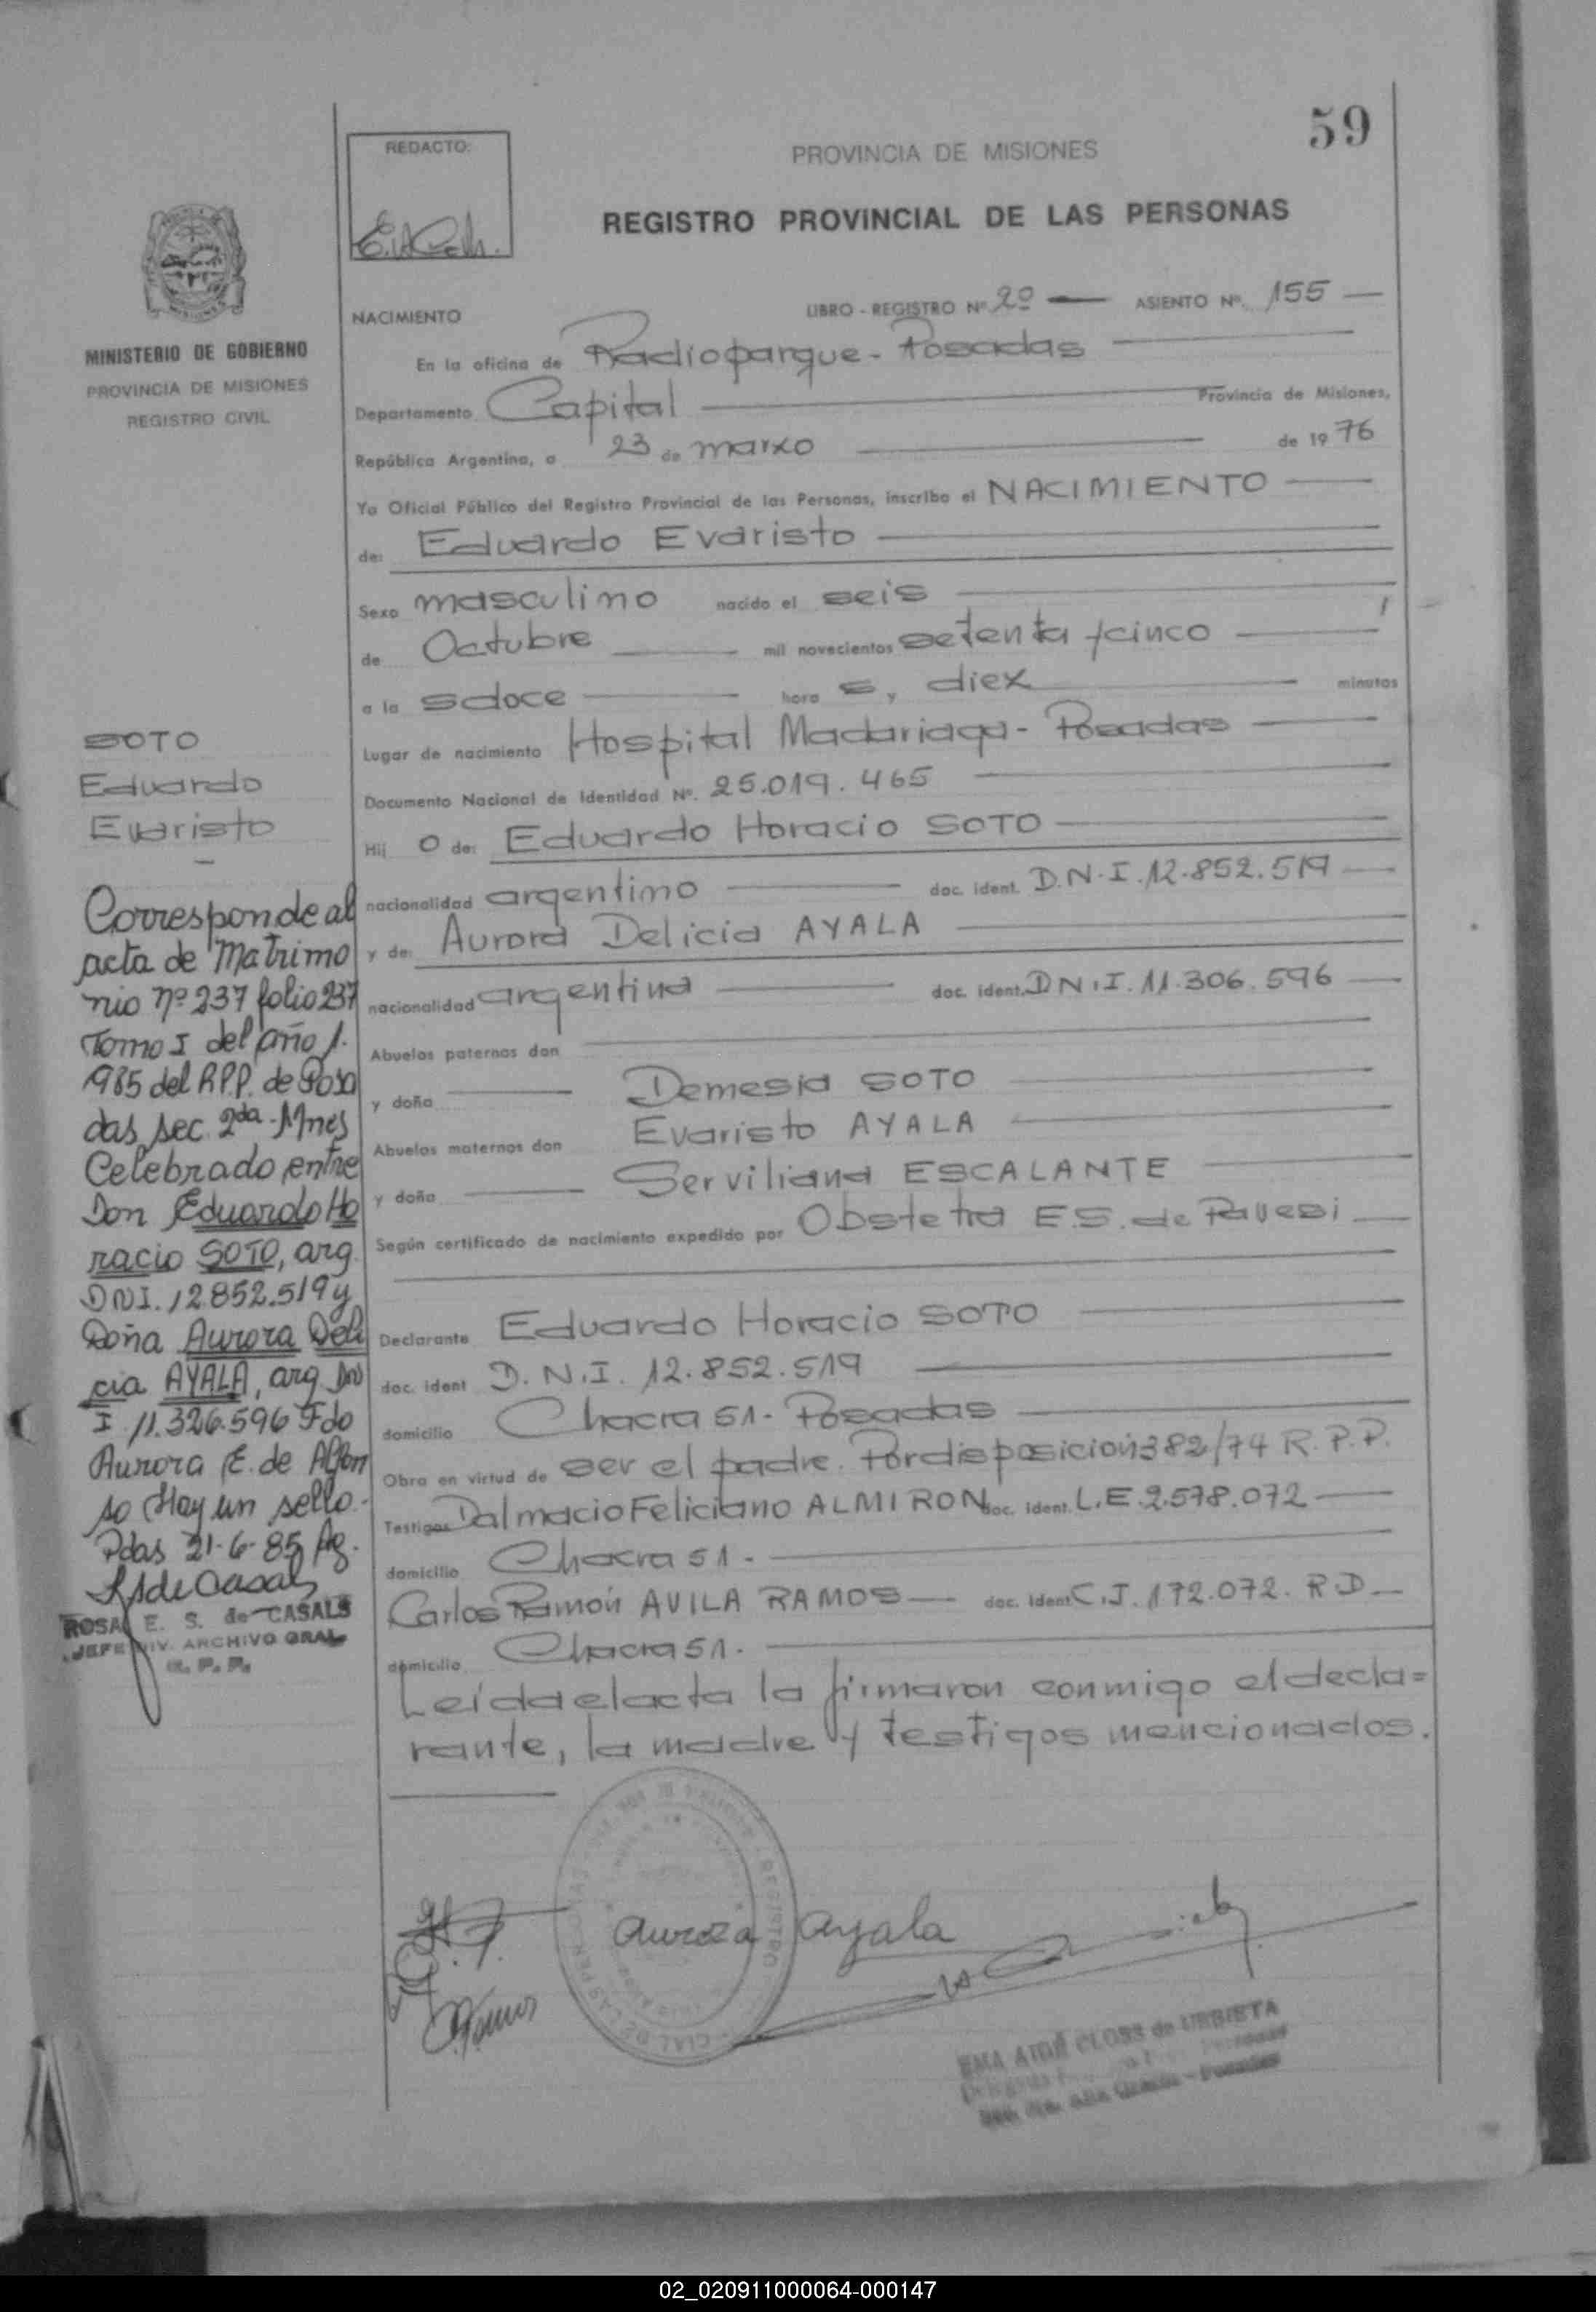 59
REDACTO:
PROVINCIA DE MISIONES
REGISTRO PROVINCIAL DE LAS PERSONAS
MINISTERIO DE GOBIERNO
PROVINCIA DE MISIONES
REGISTRO CIVIL
NACIMIENTO
LIBRO - REGISTRO Nº 2º ASIENTO Nº. 155
En la oficina de Radioparque - Posadas
Departamento Capital Provincia de Misiones,
República Argentina, a 23 de marzo de 19 76
Yo Oficial Público del Registro Provincial de las Personas, inscribo el NACIMIENTO
de: Eduardo Evaristo
Sexo masculino nacido el seis
de Octubre mil novecientos setenta y cinco
a la s doce hora s, y diez minutos
Lugar de nacimiento Hospital Madariaga - Posadas
Documento Nacional de Identidad Nº. 25.019.465
Hij o de: Eduardo Horacio SOTO
nacionalidad argentino doc. ident. D.N.I. 12.852.519
y de: Aurora Delicia AYALA
nacionalidad argentina doc. ident. DN.I. 11.306.596
Abuelos paternos don
y doña Demesia SOTO
Abuelos maternos don Evaristo AYALA
y doña Serviliana ESCALANTE
Según certificado de nacimiento expedido por Obstetra E.S. de Pavesi
Declarante Eduardo Horacio SOTO
doc. ident D.N.I. 12.852.519
domicilio Chacra 51 - Posadas
Obra en virtud de ser el padre. Por disposición 382/74 R.P.P.
Testigos Dalmacio Feliciano ALMIRON doc. ident. L.E. 2.578.072
domicilio Chacra 51 -
Carlos Ramón AVILA RAMOS doc. ident C.I. 172.072. R D
domicilio Chacra 51.
Leída el acta la firmaron conmigo el decla=
rante, la madre y testigos mencionados.
SOTO
Eduardo
Evaristo
Corresponde al
acta de Matrimo
nio nº 237 folio 237
Tomo I del año 1.
1985 del R.P.P. de Posa
das sec. 2da - Mnes
Celebrado entre
Don Eduardo Ho
racio SOTO, arg.
DNI. 12.852.519 y
Doña Aurora Deli
cia AYALA, arg. DN
I. 11.326.596 Fdo
Aurora E. de Alfon
so Hay un sello.
Pdas 21-6-85
ROSA E. S. de CASALS
JEFE DIV. ARCHIVO GRAL
R. P. P.
Aurora Ayala
EMA AIDÉ CLOSS de URBIETA
02_020911000064-000147